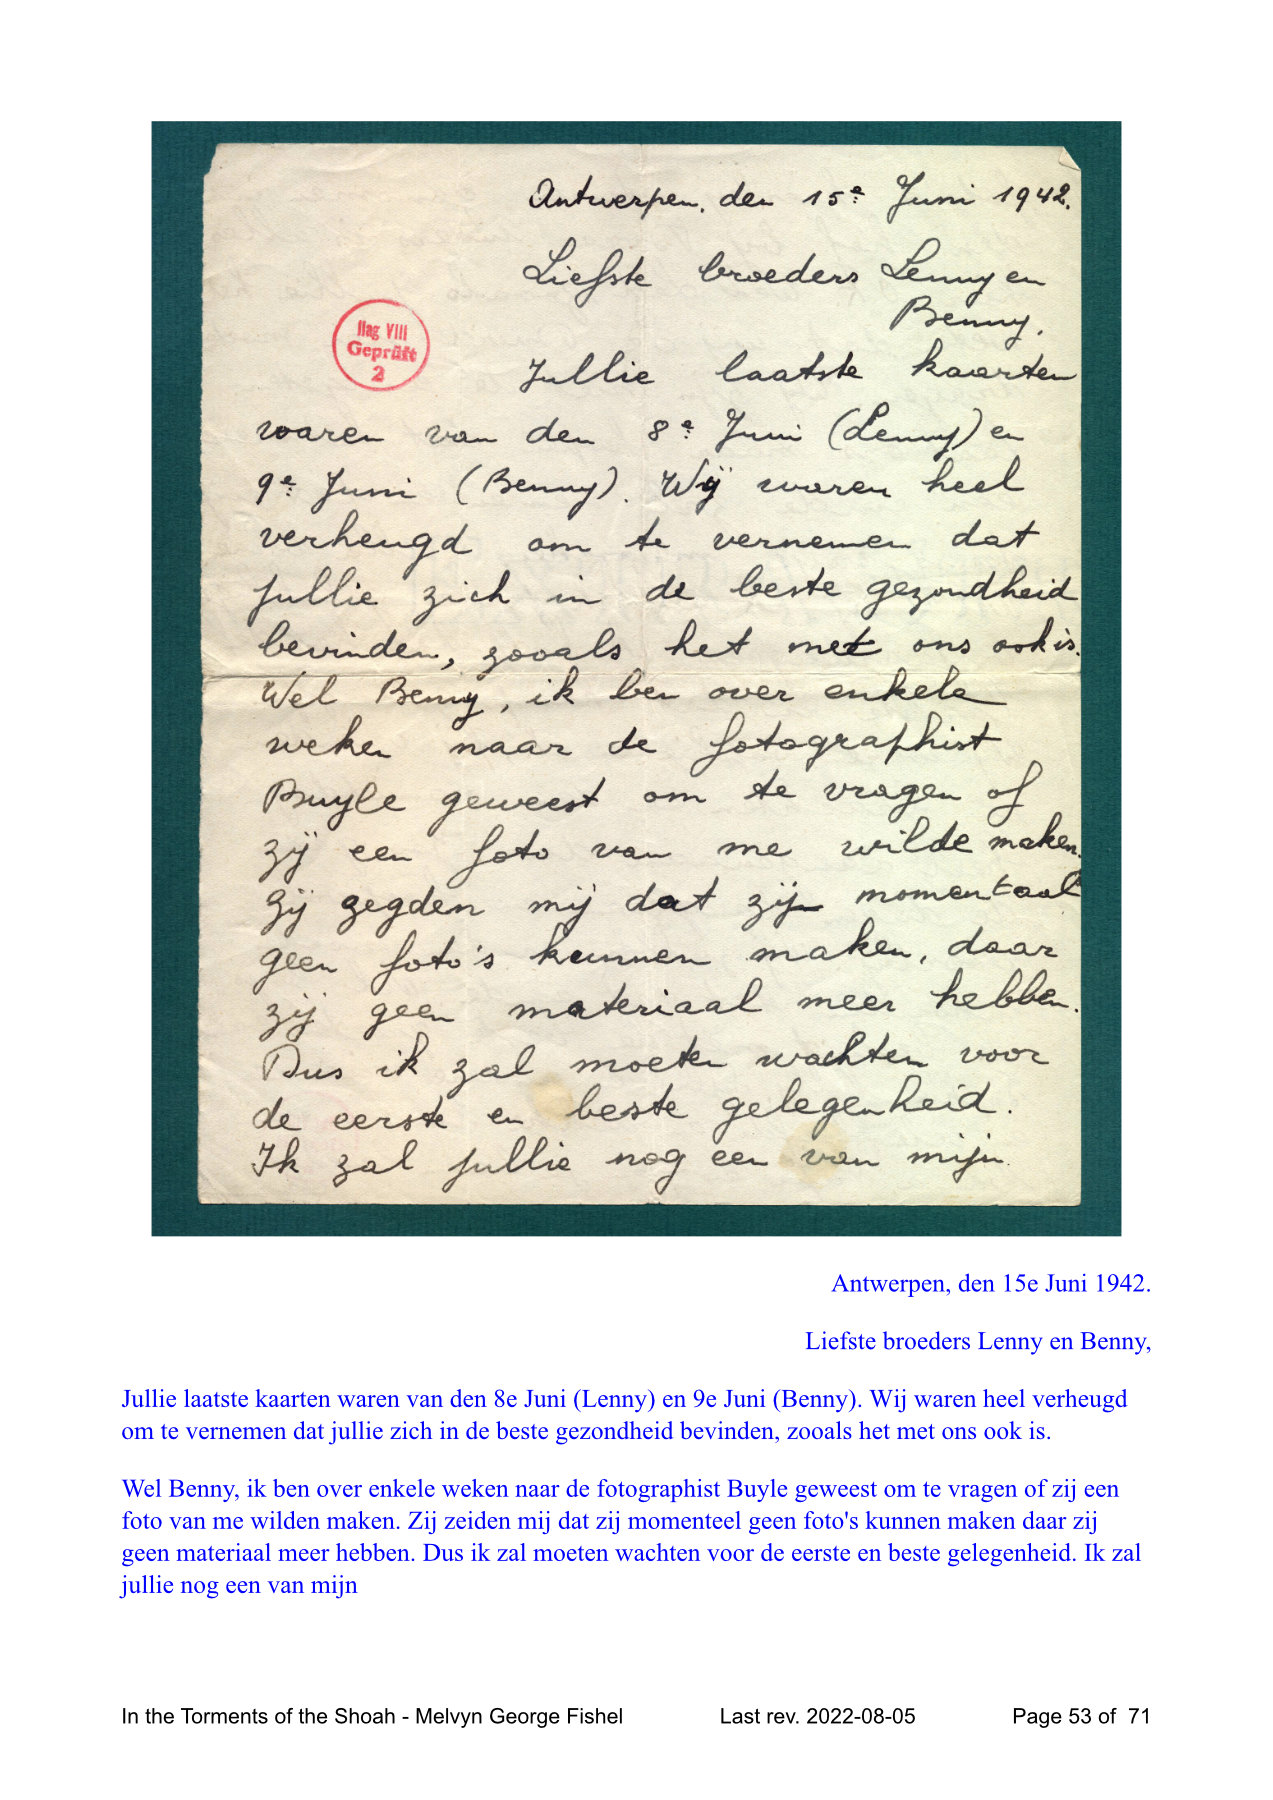 Antwerpen, den 15e Juni 1942.
Liefste broeders Lenny en
Benny.
Ilag VIII
Geprüft
2
Jullie laatste kaarten
waren van den 8e Juni (Lenny) en
9e Juni (Benny). Wij waren heel
verheugd om te vernemen dat
jullie zich in de beste gezondheid
bevinden, zooals het met ons ook is.
Wel Benny, ik ben over enkele
weken naar de fotographist
Buyle geweest om te vragen of
zij een foto van me wilde maken.
Zij zegden mij dat zij momentaal
geen foto's kunnen maken, daar
zij geen materiaal meer hebben.
Dus ik zal moeten wachten voor
de eerste en beste gelegenheid.
Ik zal jullie nog een van mijn
Antwerpen, den 15e Juni 1942.
Liefste broeders Lenny en Benny,
Jullie laatste kaarten waren van den 8e Juni (Lenny) en 9e Juni (Benny). Wij waren heel verheugd
om te vernemen dat jullie zich in de beste gezondheid bevinden, zooals het met ons ook is.
Wel Benny, ik ben over enkele weken naar de fotographist Buyle geweest om te vragen of zij een
foto van me wilden maken. Zij zeiden mij dat zij momenteel geen foto's kunnen maken daar zij
geen materiaal meer hebben. Dus ik zal moeten wachten voor de eerste en beste gelegenheid. Ik zal
jullie nog een van mijn
In the Torments of the Shoah - Melvyn George Fishel Last rev. 2022-08-05 Page 53 of 71